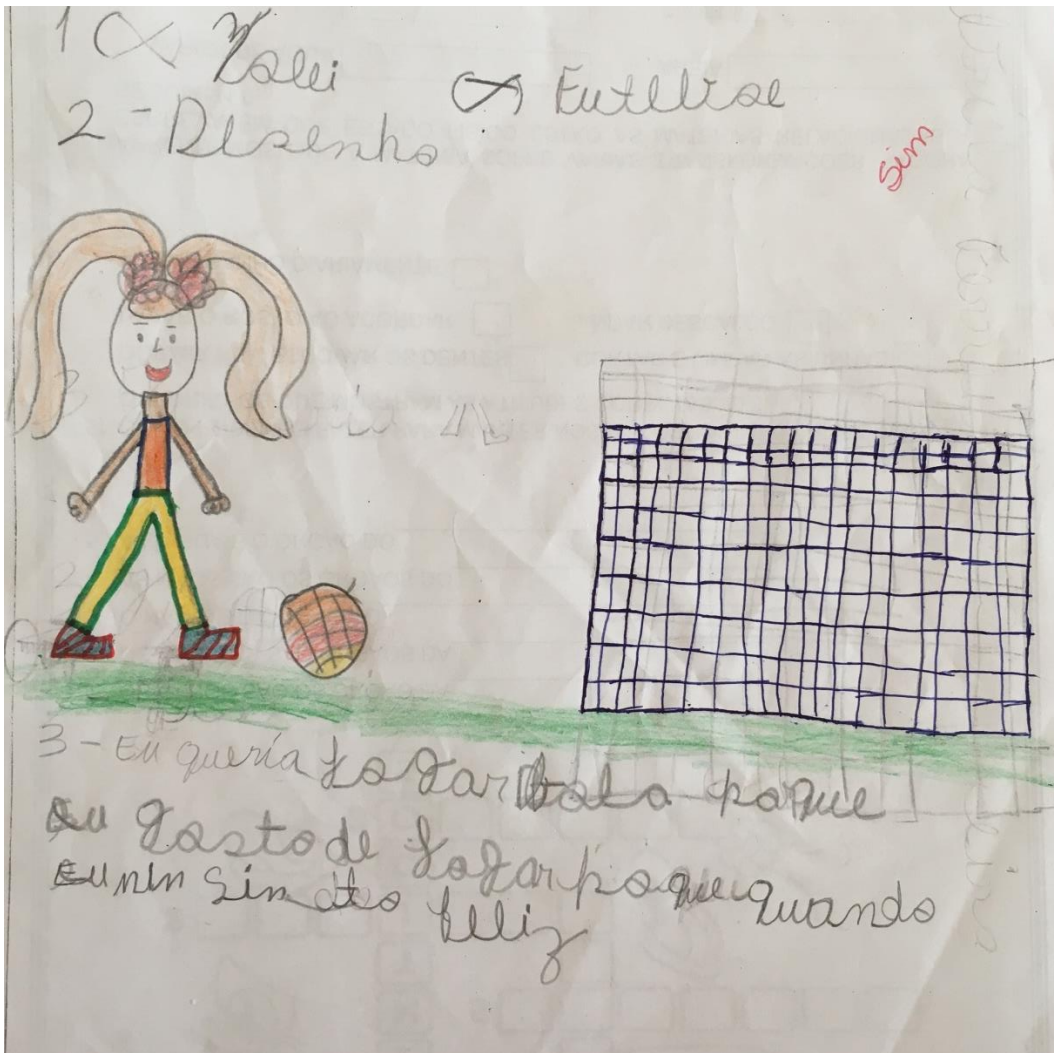 1 (X) Volei (X) Futebise
2 - Desenho
sim
3 - Eu quería Jogar bola poque
Eu gosto de Jogar poque quando
Eu min Sin oto feliz